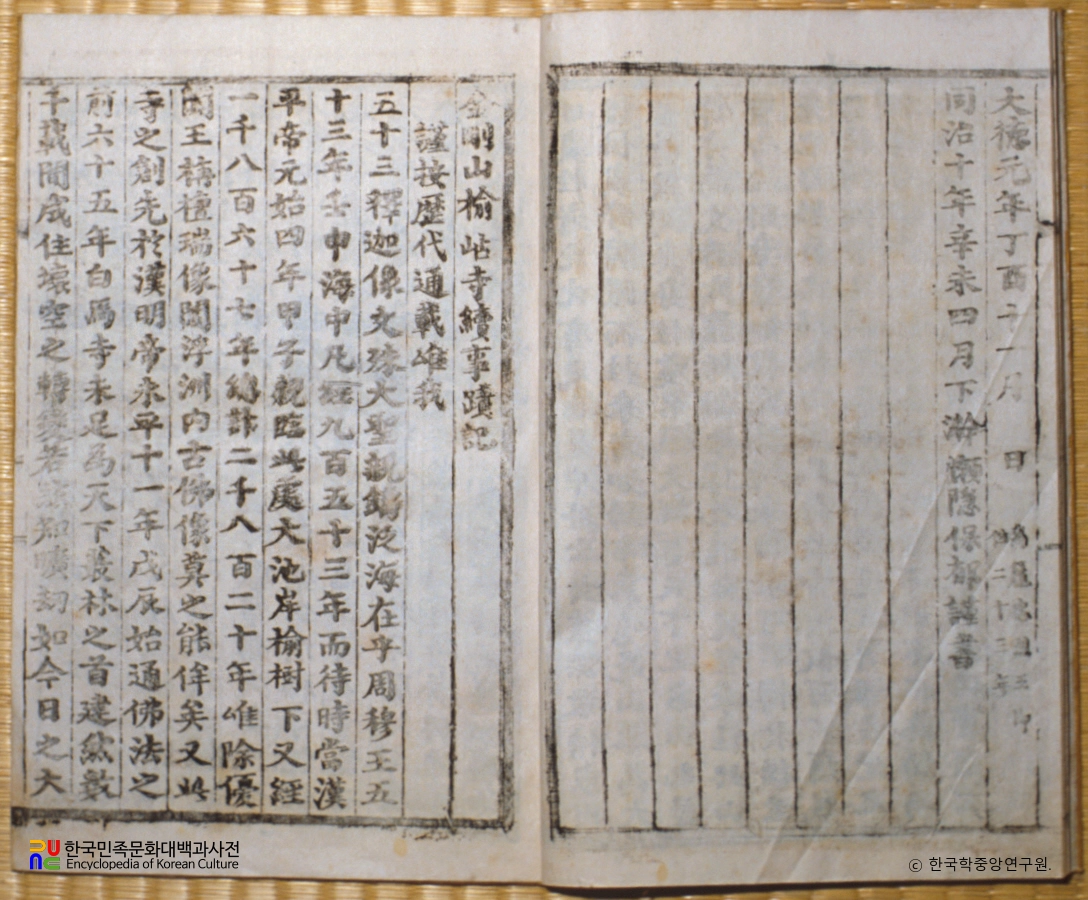 大德元年丁酉十一月 日
二十三年
同治十年辛未四月下澣懶隱保郁謹書
金剛山楡岾寺續事蹟記
謹按歷代通載唯我
五十三釋迦像文殊大聖親鑄泛海在乎周穆王五
十三年壬申海中凡經九百五十三年而待時當漢
平帝元始四年甲子親臨此處大池岸楡樹下又經
一千八百六十七年總計二千八百二十年唯除優
闐王栴檀瑞像閻浮洲內古佛像莫之能侔矣又此
寺之創先於漢明帝永平十一年戊辰始通佛法之
前六十五年白馬寺未足為天下叢林之首建然數
千載間成住壞空之轉變若知曠劫如今日之大
한국민족문화대백과사전
Encyclopedia of Korean Culture
ⓒ 한국학중앙연구원.